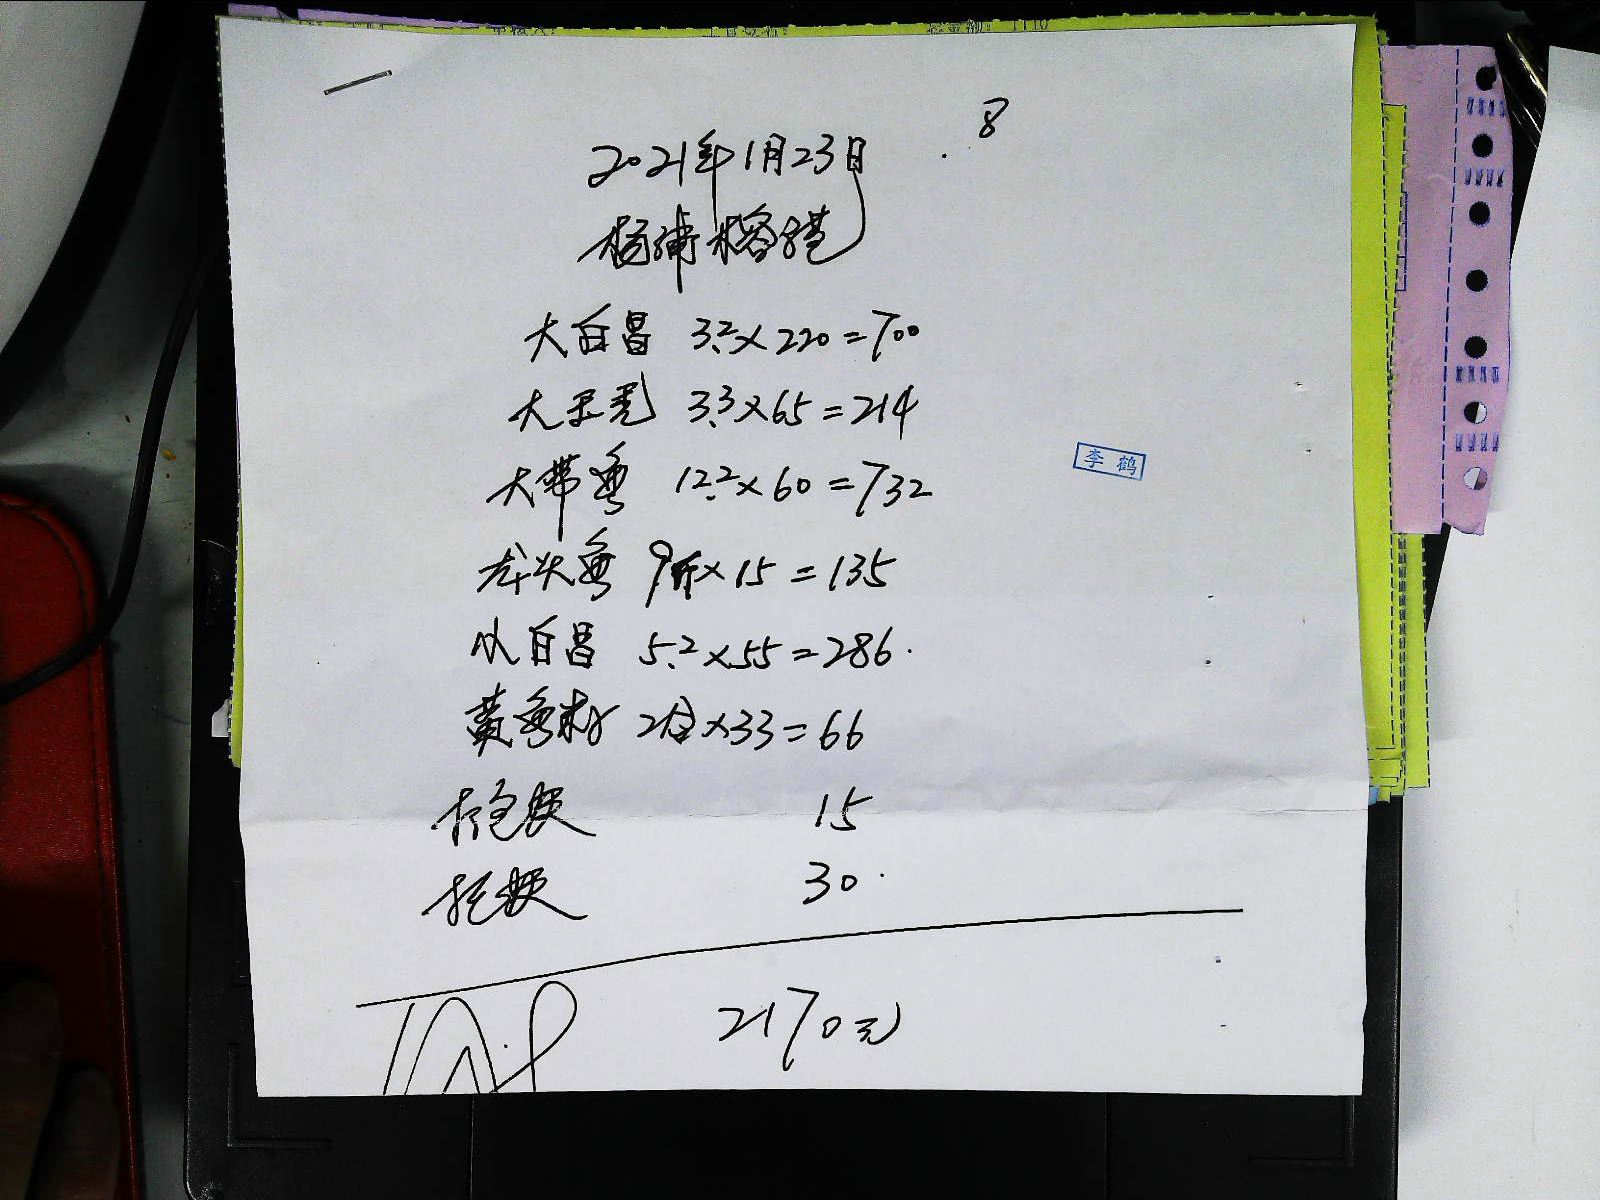 8
2021年1月23日
杨浦
大白昌 3.2×220=700
大 3.3×65=214
大带鱼 12.2×60=732
李鹤
龙头鱼 9斤×15=135
小白昌 5.2×55=286
黄鱼 2合×33=66
15
30
2170元